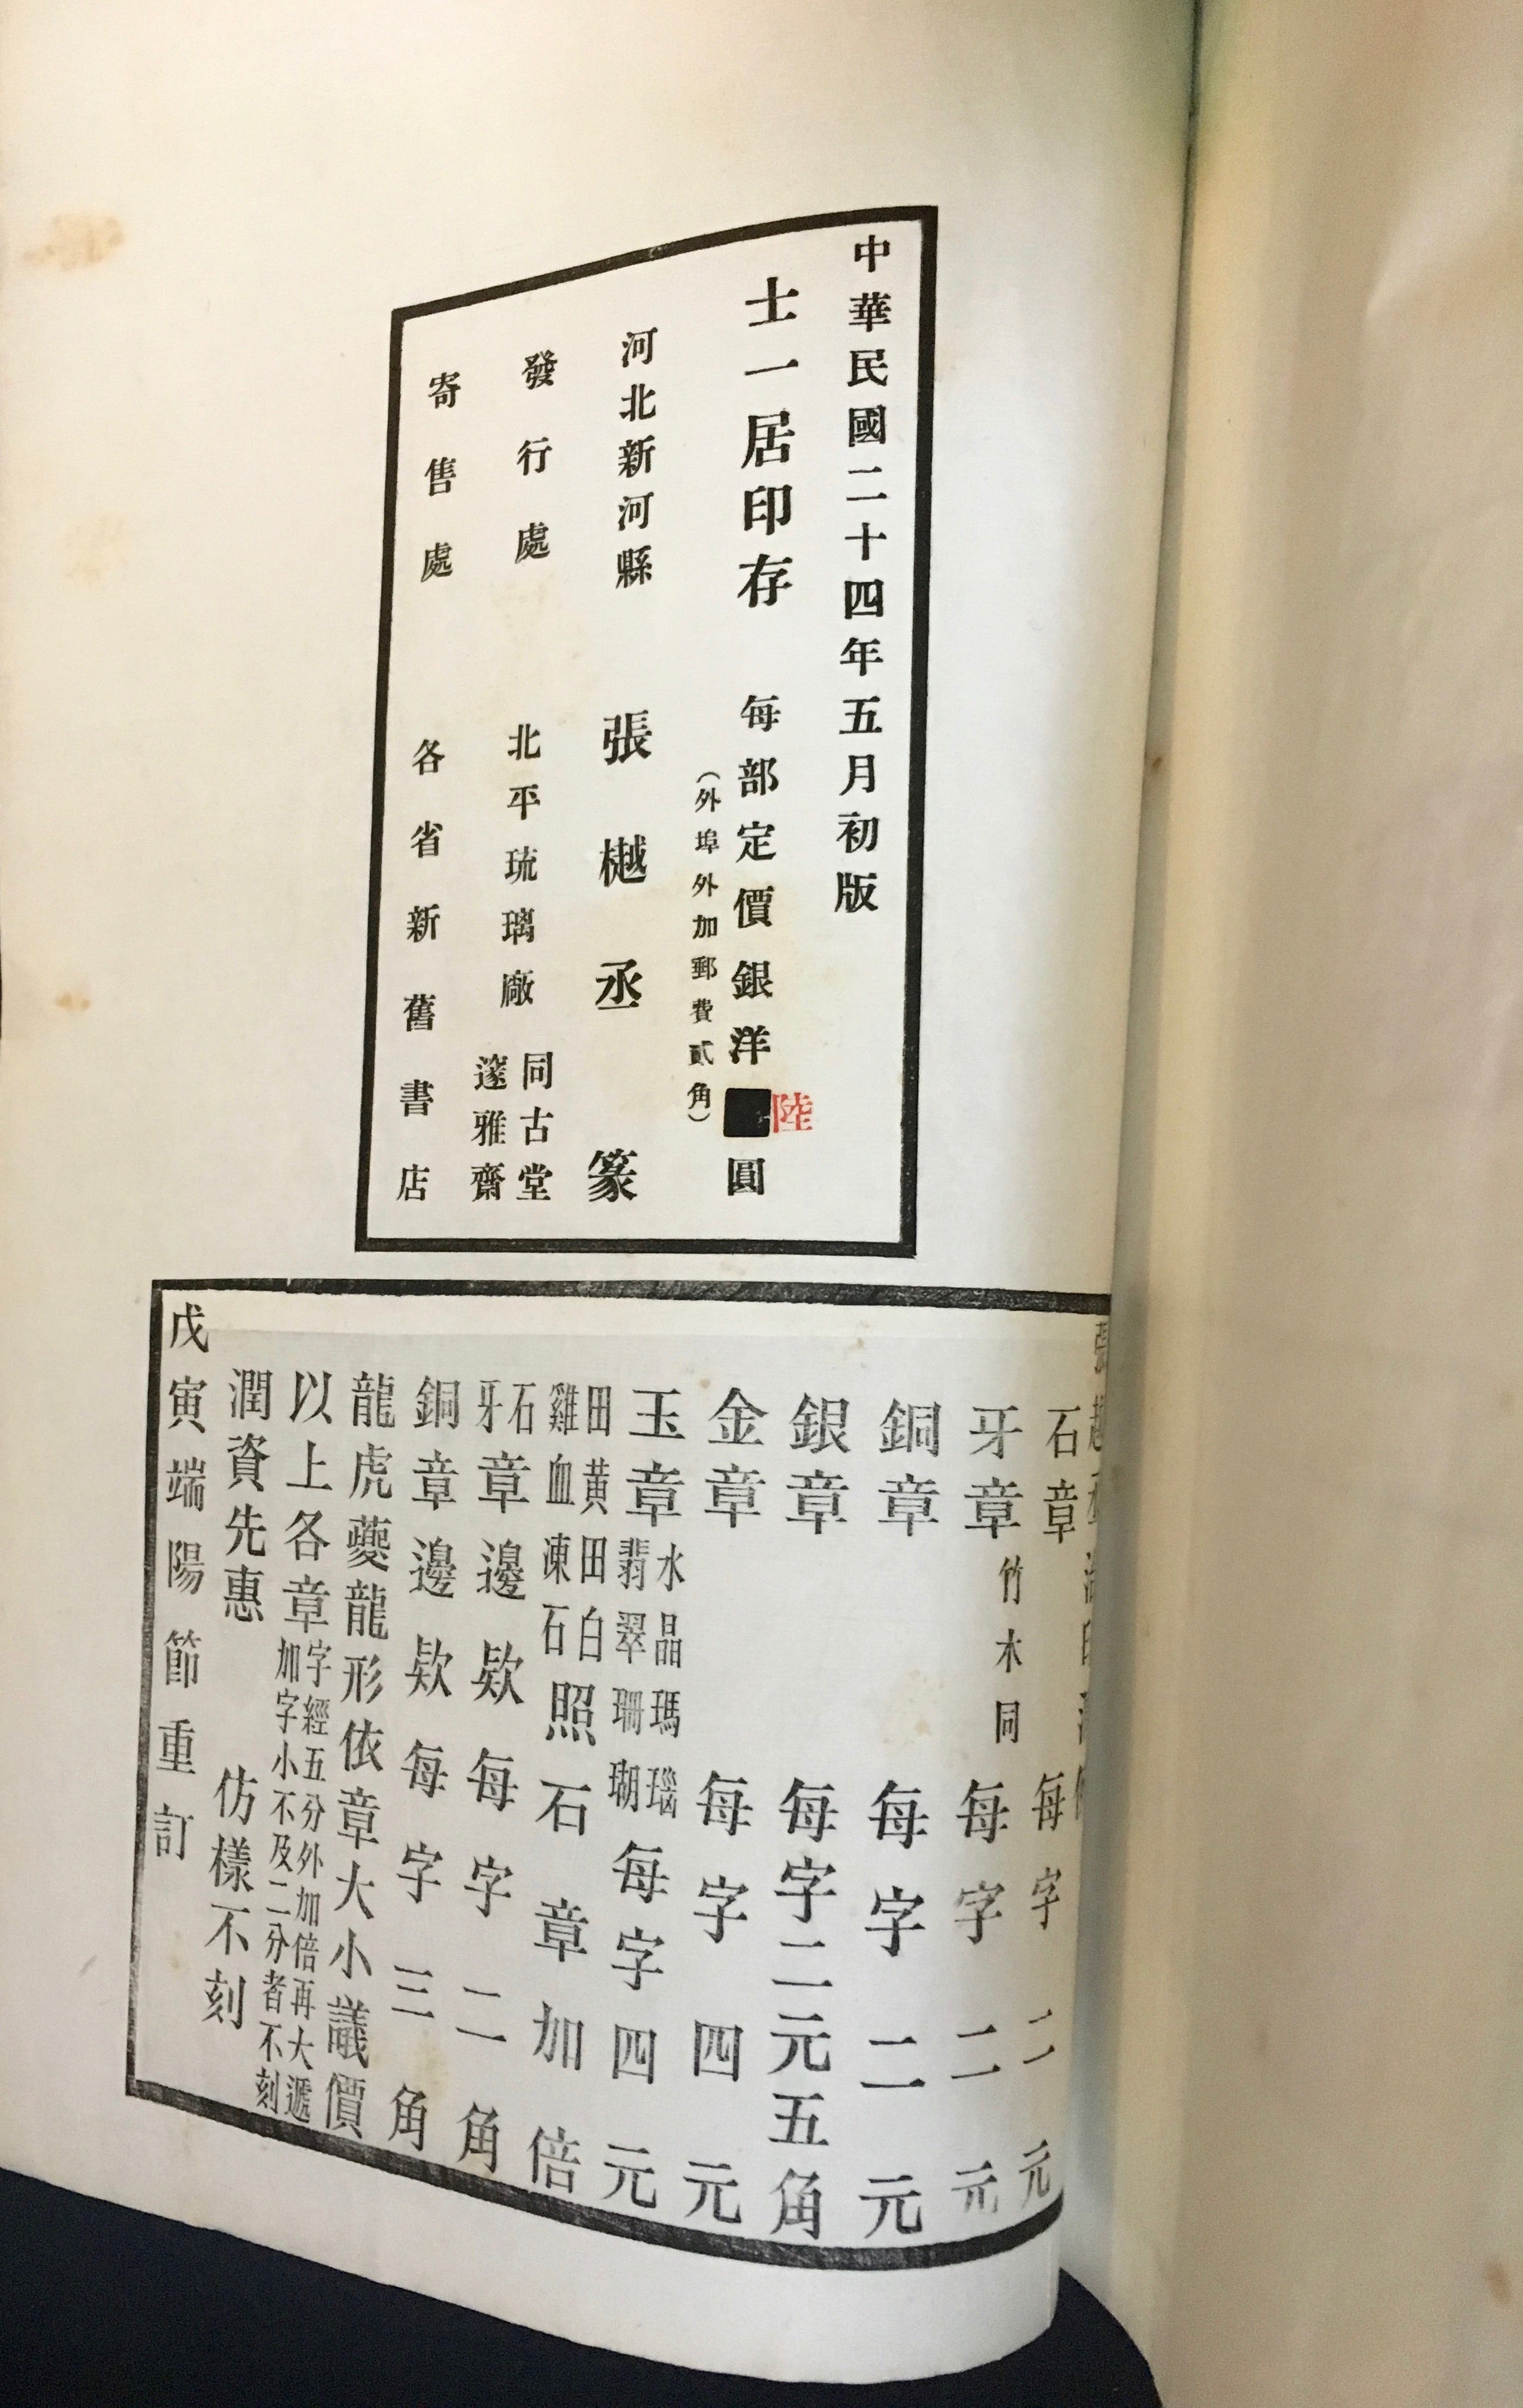 中華民國二十四年五月初版
士一居印存 每部定價銀洋陸圓
（外埠外加郵費貳角）
河北新河縣 張樾丞篆
發行處 北平琉璃廠 同古堂
邃雅齋
寄售處 各省新舊書店
石章 每字二元
牙章 竹木同 每字二元
銅章 每字二元
銀章 每字二元五角
金章 每字四元
玉章 水晶瑪瑙
翡翠珊瑚 每字四元
田黃田白
雞血凍石 照石章加倍
石
牙 章邊欵每字二角
銅章邊欵每字三角
龍虎夔龍形依章大小議價
以上各章 字經五分外加倍再大遞
加字小不及二分者不刻
潤資先惠 仿樣不刻
戊寅端陽節重訂